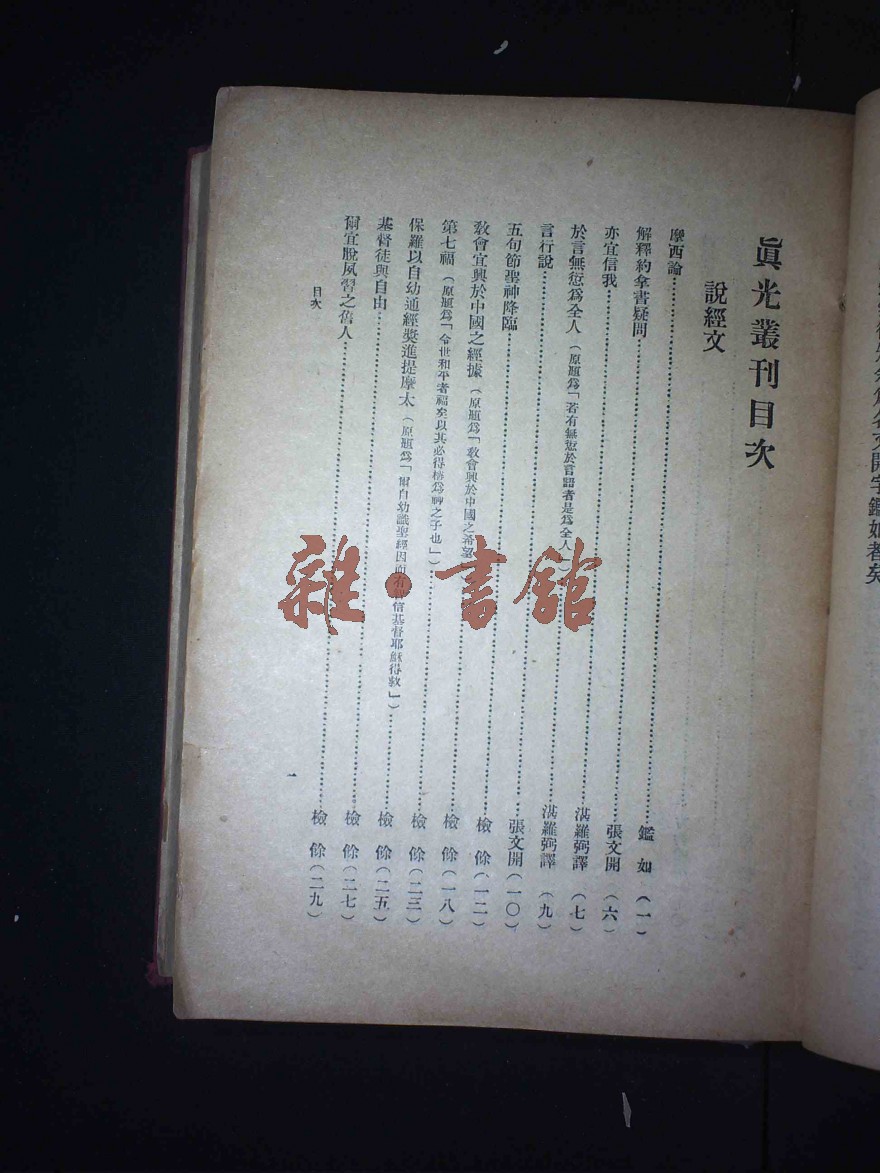 眞光叢刊目次
說經文
摩西論……鑑 如(一)
解釋約拿書疑問……張文開(六)
亦宜信我……湛羅弼譯(七)
於言無愆爲全人(原題爲「若有無愆於言語者是爲全人」)……湛羅弼譯(九)
言行說……張文開(一〇)
五旬節聖神降臨……檢 餘(一二)
敎會宜興於中國之經據(原題爲「敎會興於中國之希望……檢 餘(一八)
第七福(原題爲「令世和平者福矣以其必得稱爲神之子也」)……檢 餘(二三)
保羅以自幼通經獎進提摩太(原題爲「爾自幼識聖經因而有智信基督耶穌得救」)……檢 餘(二五)
基督徒與自由……檢 餘(二七)
爾宜脫夙習之舊人……檢 餘(二九)
目次
一
文開字鑑如者矣
雜·書館